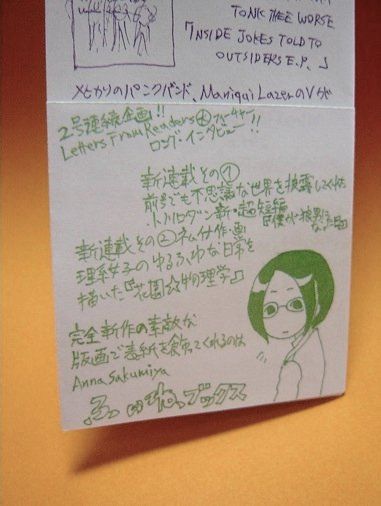 TONK THEE WORSE
「INSIDE JOKES TOLD TO
OUTSIDERS E.P.」
メヒカリのパンクバンド、Maniqui LazerのVが
2号連続企画!!
Letters From Readers
ロング・インタビュー!!
新連載その①
前号でも不思議な世界を披露してくれた
新・超短編
新連載その②ネム付作・画
理系女子のゆるふわな日常を
描いた『花園☆物理学』
完全新作の素敵な
版画で表紙を飾ってくれるのは
Anna Sakumiya